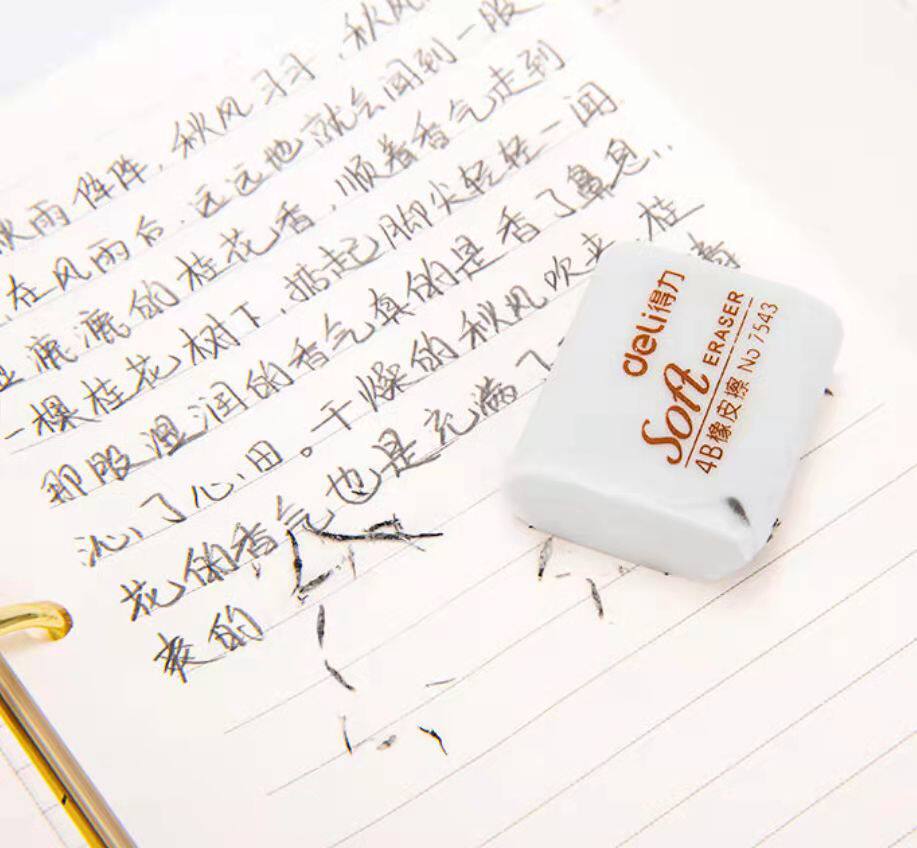 秋雨阵阵，秋风习习，秋风
在风雨后，远远地就会闻到一股
漉漉的桂花香，顺着香气走到
一棵桂花树下，掂起脚尖轻轻一闻
那股湿润的香气真的是香了鼻息，
沁了心田。干燥的秋风吹来，桂
花的香气也是充满了
的
deli得力
Soft ERASER
4B橡皮擦 No 7543